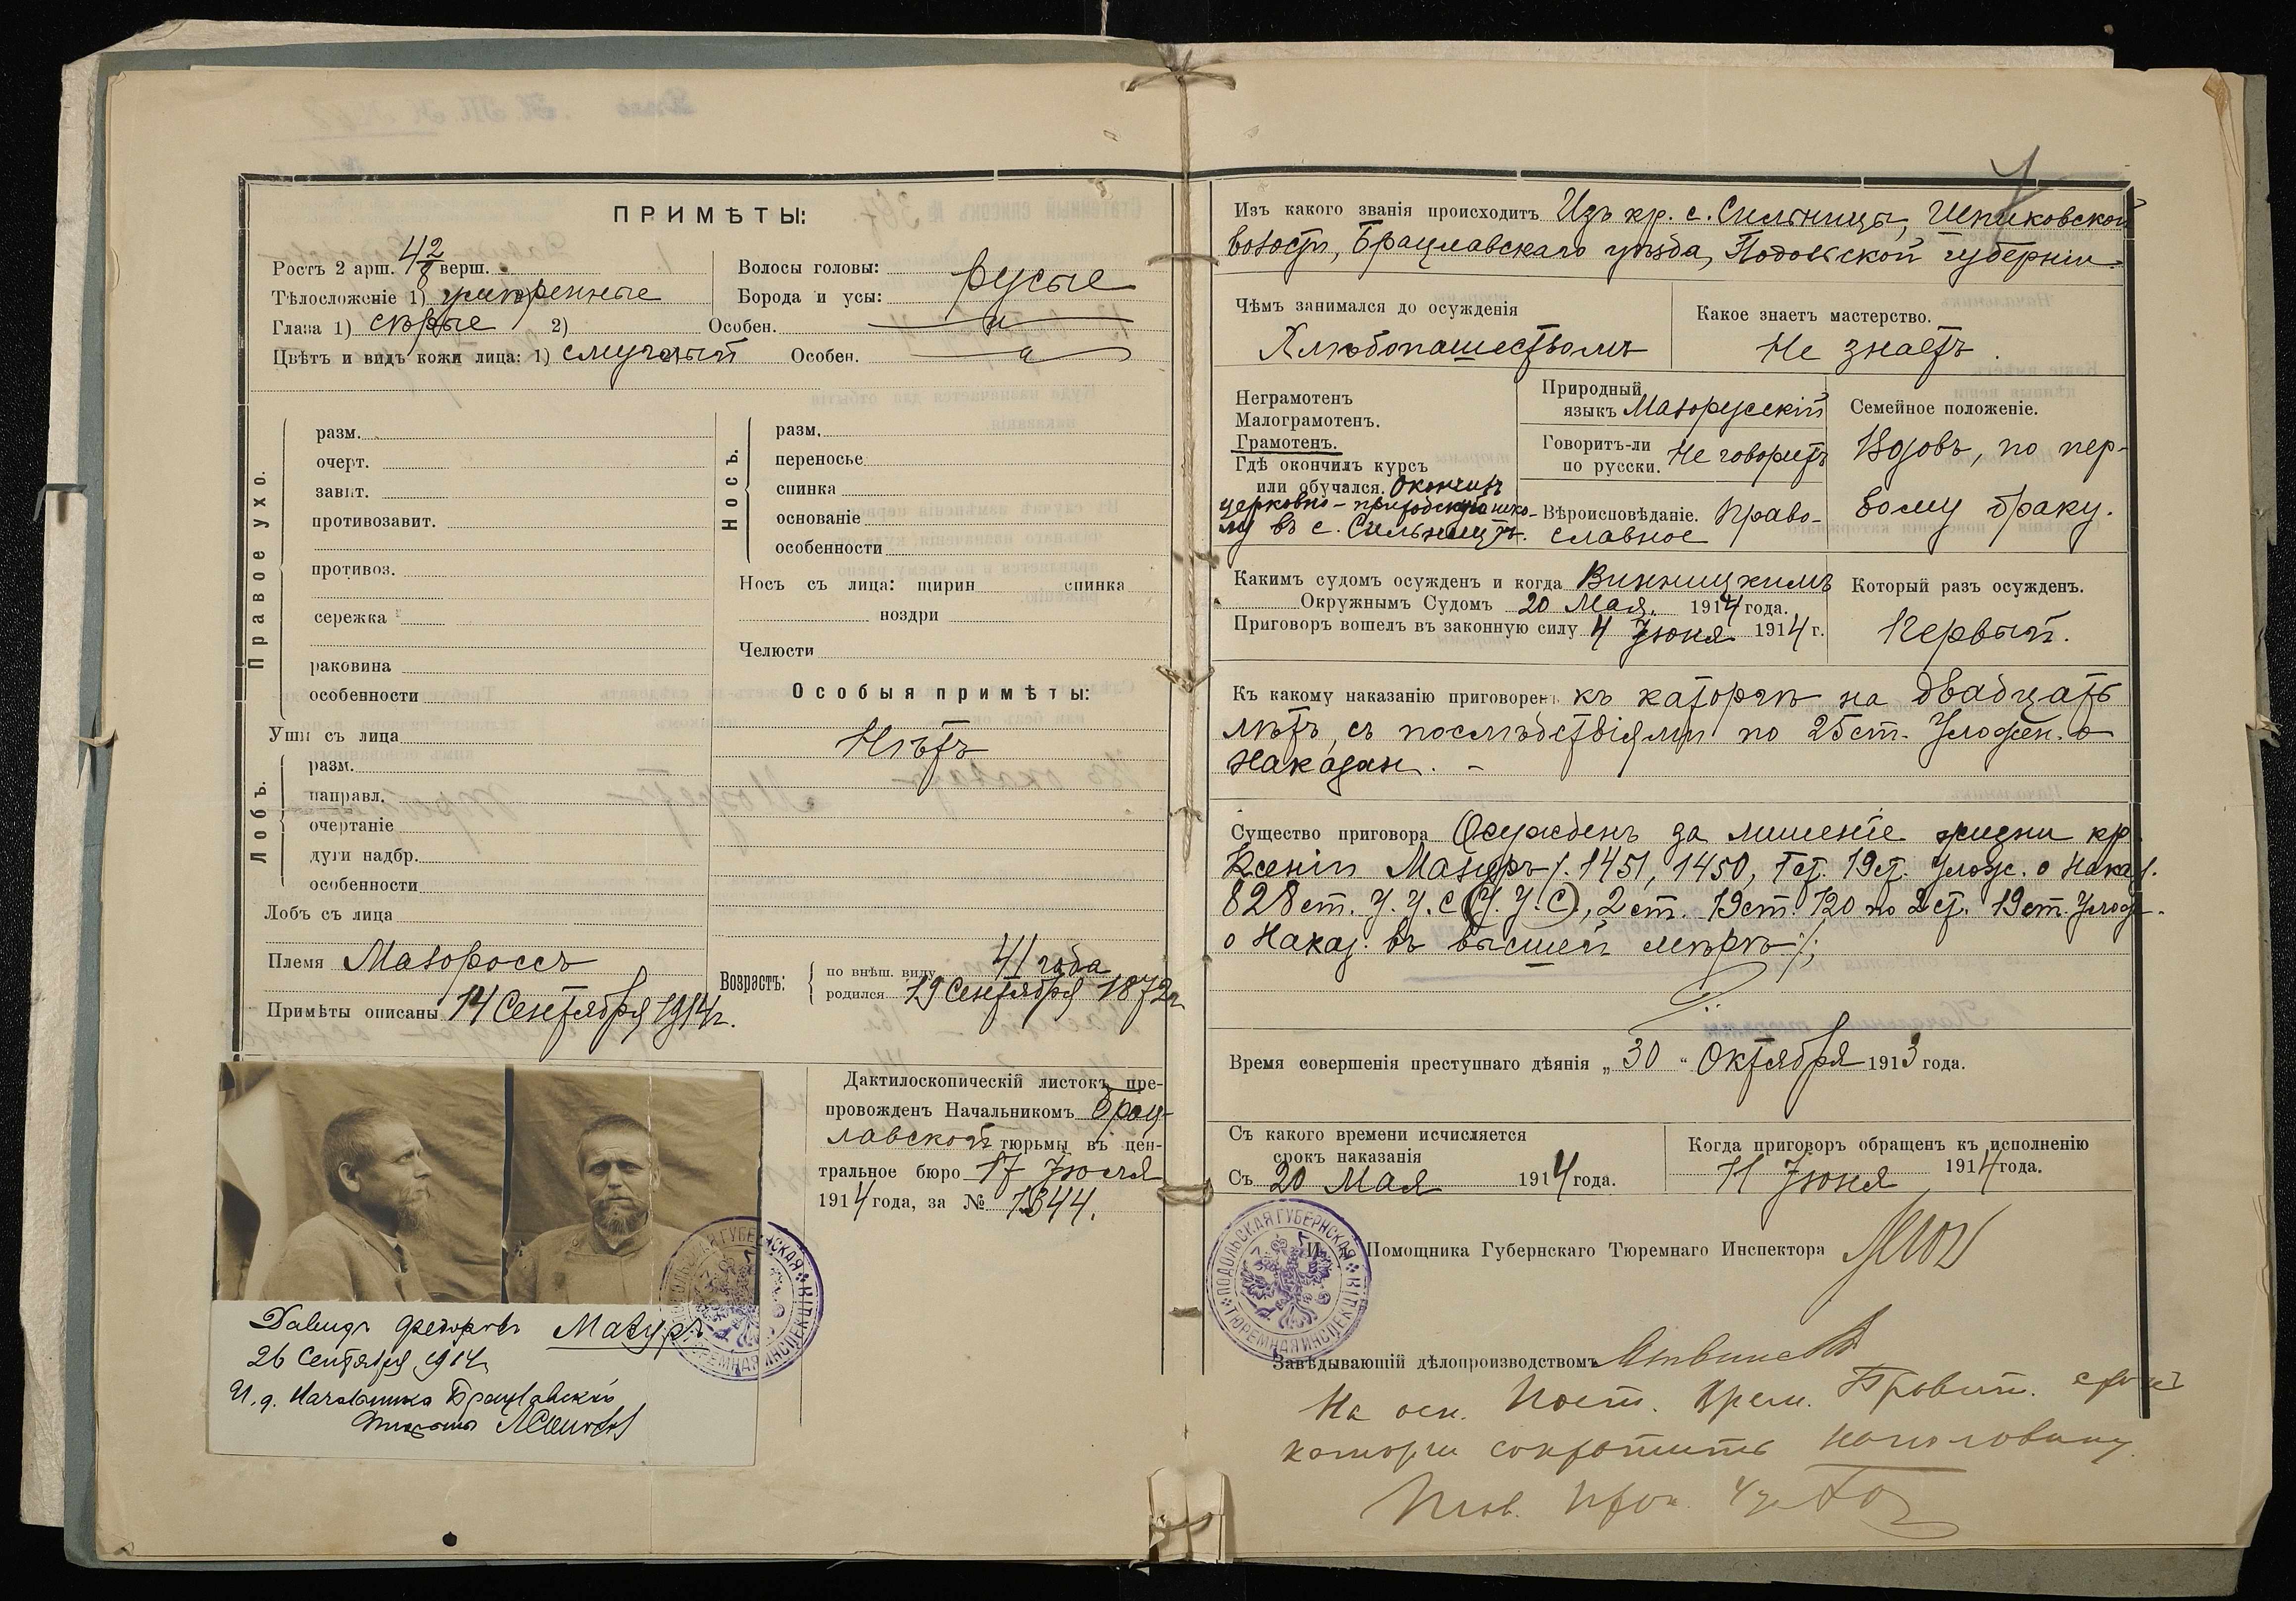 ПРИМѢТЫ:
Ростъ 2 арш. 4 2/8 верш.
Тѣлосложеніе 1)
Глаза 1) сѣрые 2) Особен.
Цвѣтъ и видъ кожи лица: 1) смуглый Особен.
Волосы головы:
Борода и усы: русые
Правое ухо.
разм.
очерт.
завит.
противозавит.
противоз.
сережка
раковина
особенности
Уши съ лица
Лобъ.
разм.
направл.
очертаніе
дуги надбр.
особенности
Лобъ съ лица
Племя Малороссъ
Примѣты описаны 14 Сентября 1914 г.
Носъ.
разм.
переносье
спинка
основаніе
особенности
Носъ съ лица: ширин спинка
ноздри
Челюсти
Особыя примѣты:
Нѣтъ
Возрастъ:
по внѣш. виду 41 года
родился 19 Сентября 1872 г
Дактилоскопическій листокъ пре-
провожденъ Начальникомъ Брац-
лавской тюрьмы въ цен-
тральное бюро 17 Іюля
1914 года, за № 1344.
Давидъ Федоровъ Мазуръ
26 Сентября 1914 г
И. д. Начальника Брацлавской
тюрьмы
ПОДОЛЬСКАЯ ГУБЕРНСКАЯ ТЮРЕМНАЯ ИНСПЕКЦІЯ
Изъ какого званія происходитъ Изъ кр. с. Сильницы, Шпиковской
волости, Брацлавскаго уѣзда, Подольской губерніи.
Чѣмъ занимался до осужденія
Хлѣбопашествомъ
Какое знаетъ мастерство.
Не знаетъ.
Неграмотенъ
Малограмотенъ.
Грамотенъ.
Гдѣ окончилъ курсъ
или обучался. Окончилъ
церковно-приходскую шко-
лу въ с. Сильницѣ.
Природный
языкъ Малорусскій
Говоритъ-ли
по русски. Не говоритъ
Вѣроисповѣданіе. Право-
славное
Семейное положеніе.
Вдовъ, по пер-
вому браку.
Какимъ судомъ осужденъ и когда Винницкимъ
Окружнымъ Судомъ 20 Мая 1914 года.
Приговоръ вошелъ въ законную силу 4 Іюня 1914 г.
Который разъ осужденъ.
Первый.
Къ какому наказанію приговоренъ къ каторгѣ на двадцать
лѣтъ, съ послѣдствіями по 25 ст. Уложен. о
Наказан. -
Существо приговора Осужденъ за лишеніе жизни кр.
Ксеніи Мазуръ /. 1451, 1450, 1 ст. 19 ст. Улож. о Наказ.
828 ст. У. У. С. (У. У. С.), 2 ст. 19 ст. 120 по 2 ст. 19 ст. Улож.
о Наказ. въ высшей мѣрѣ /.
Время совершенія преступнаго дѣянія „ 30 “ Октября 1913 года.
Съ какого времени исчисляется
срокъ наказанія
Съ 20 Мая 1914 года.
Когда приговоръ обращенъ къ исполненію
11 Іюня 1914 года.
Помощника Губернскаго Тюремнаго Инспектора
ПОДОЛЬСКАЯ ГУБЕРНСКАЯ ТЮРЕМНАЯ ИНСПЕКЦІЯ
Завѣдывающій дѣлопроизводствомъ
На осн. Пост. Врем. Правит. срокъ
каторги сократить наполовину